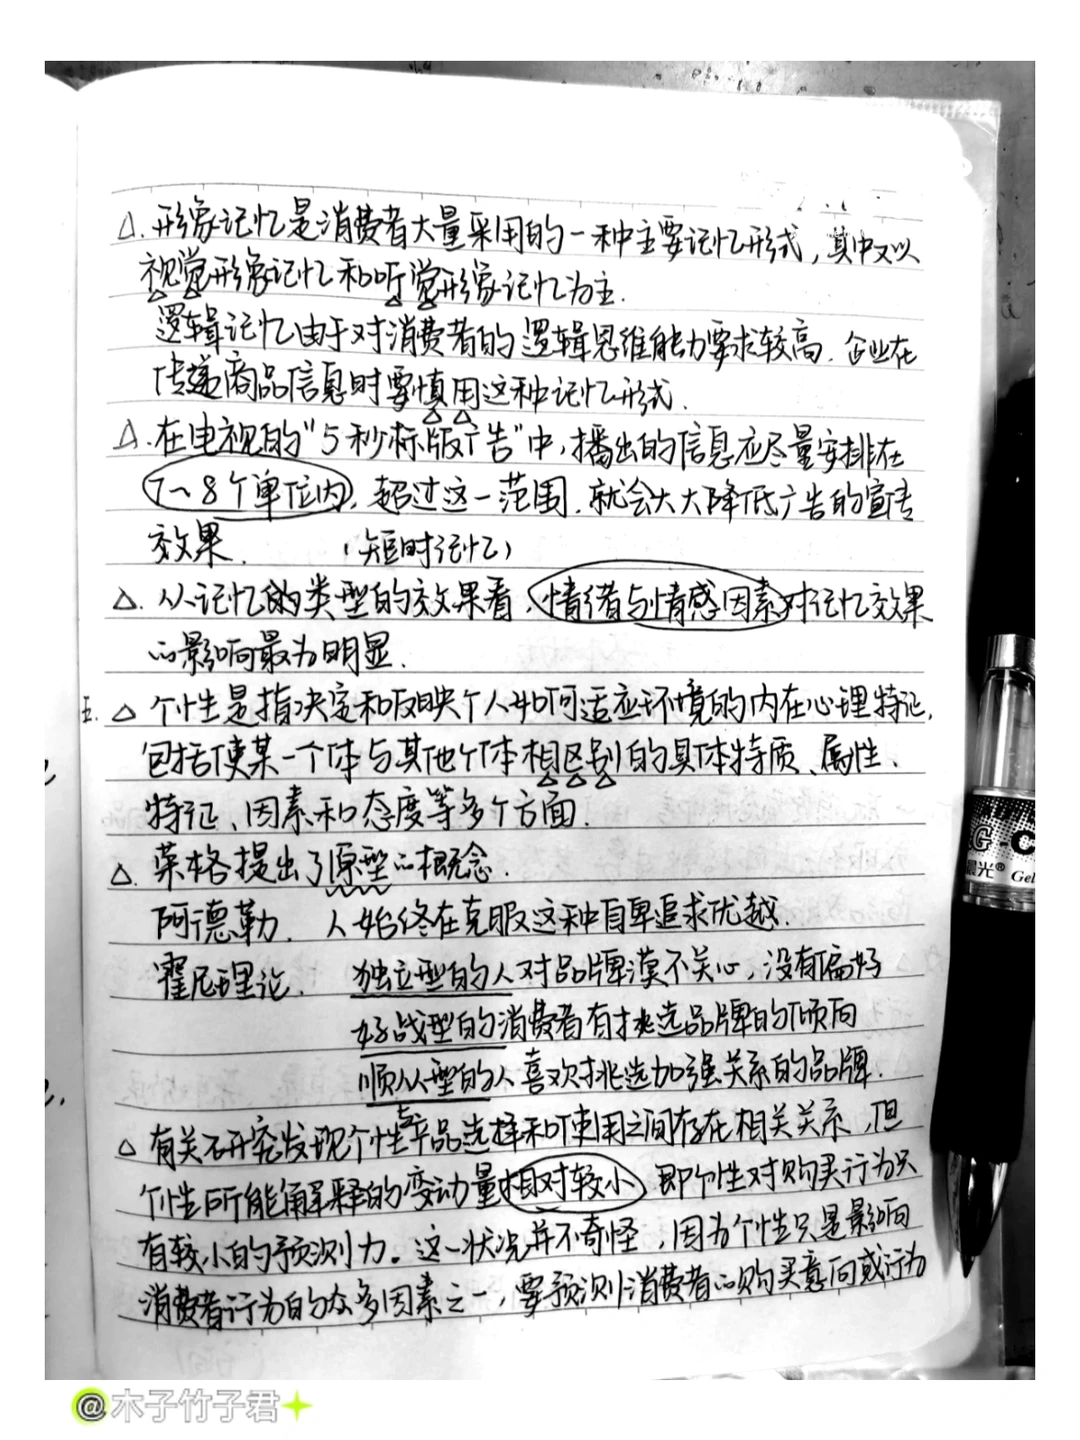 △.形象记忆是消费者大量采用的一种主要记忆形式,其中又以
视觉形象记忆和听觉形象记忆为主.
逻辑记忆由于对消费者的逻辑思维能力要求较高.企业在
传递商品信息时要慎用这种记忆形式.
△.在电视的"5秒标版广告"中,播出的信息应尽量安排在
7~8个单位内,超过这一范围.就会大大降低广告的宣传
效果. (短时记忆)
△.从记忆的类型的效果看,情绪与情感因素对记忆效果
的影响最为明显.
五.△个性是指决定和反映个人如何适应环境的内在心理特征,
包括使某一个体与其他个体相区别的具体特质、属性、
特征、因素和态度等多个方面.
△.荣格提出了原型的概念.
阿德勒. 人始终在克服这种自卑追求优越.
霍尼理论. 独立型的人对品牌漠不关心,没有偏好
好战型的消费者有挑选品牌的倾向
顺从型的人喜欢挑选加强关系的品牌.
△有关研究发现个性与产品选择和使用之间存在相关关系,但
个性所能解释的变动量相对较小,即个性对购买行为只
有较小的预测力。这一状况并不奇怪,因为个性只是影响
消费者行为的众多因素之一,要预测消费者的购买意向或行为
G-C
晨光® Gel
@木子竹子君